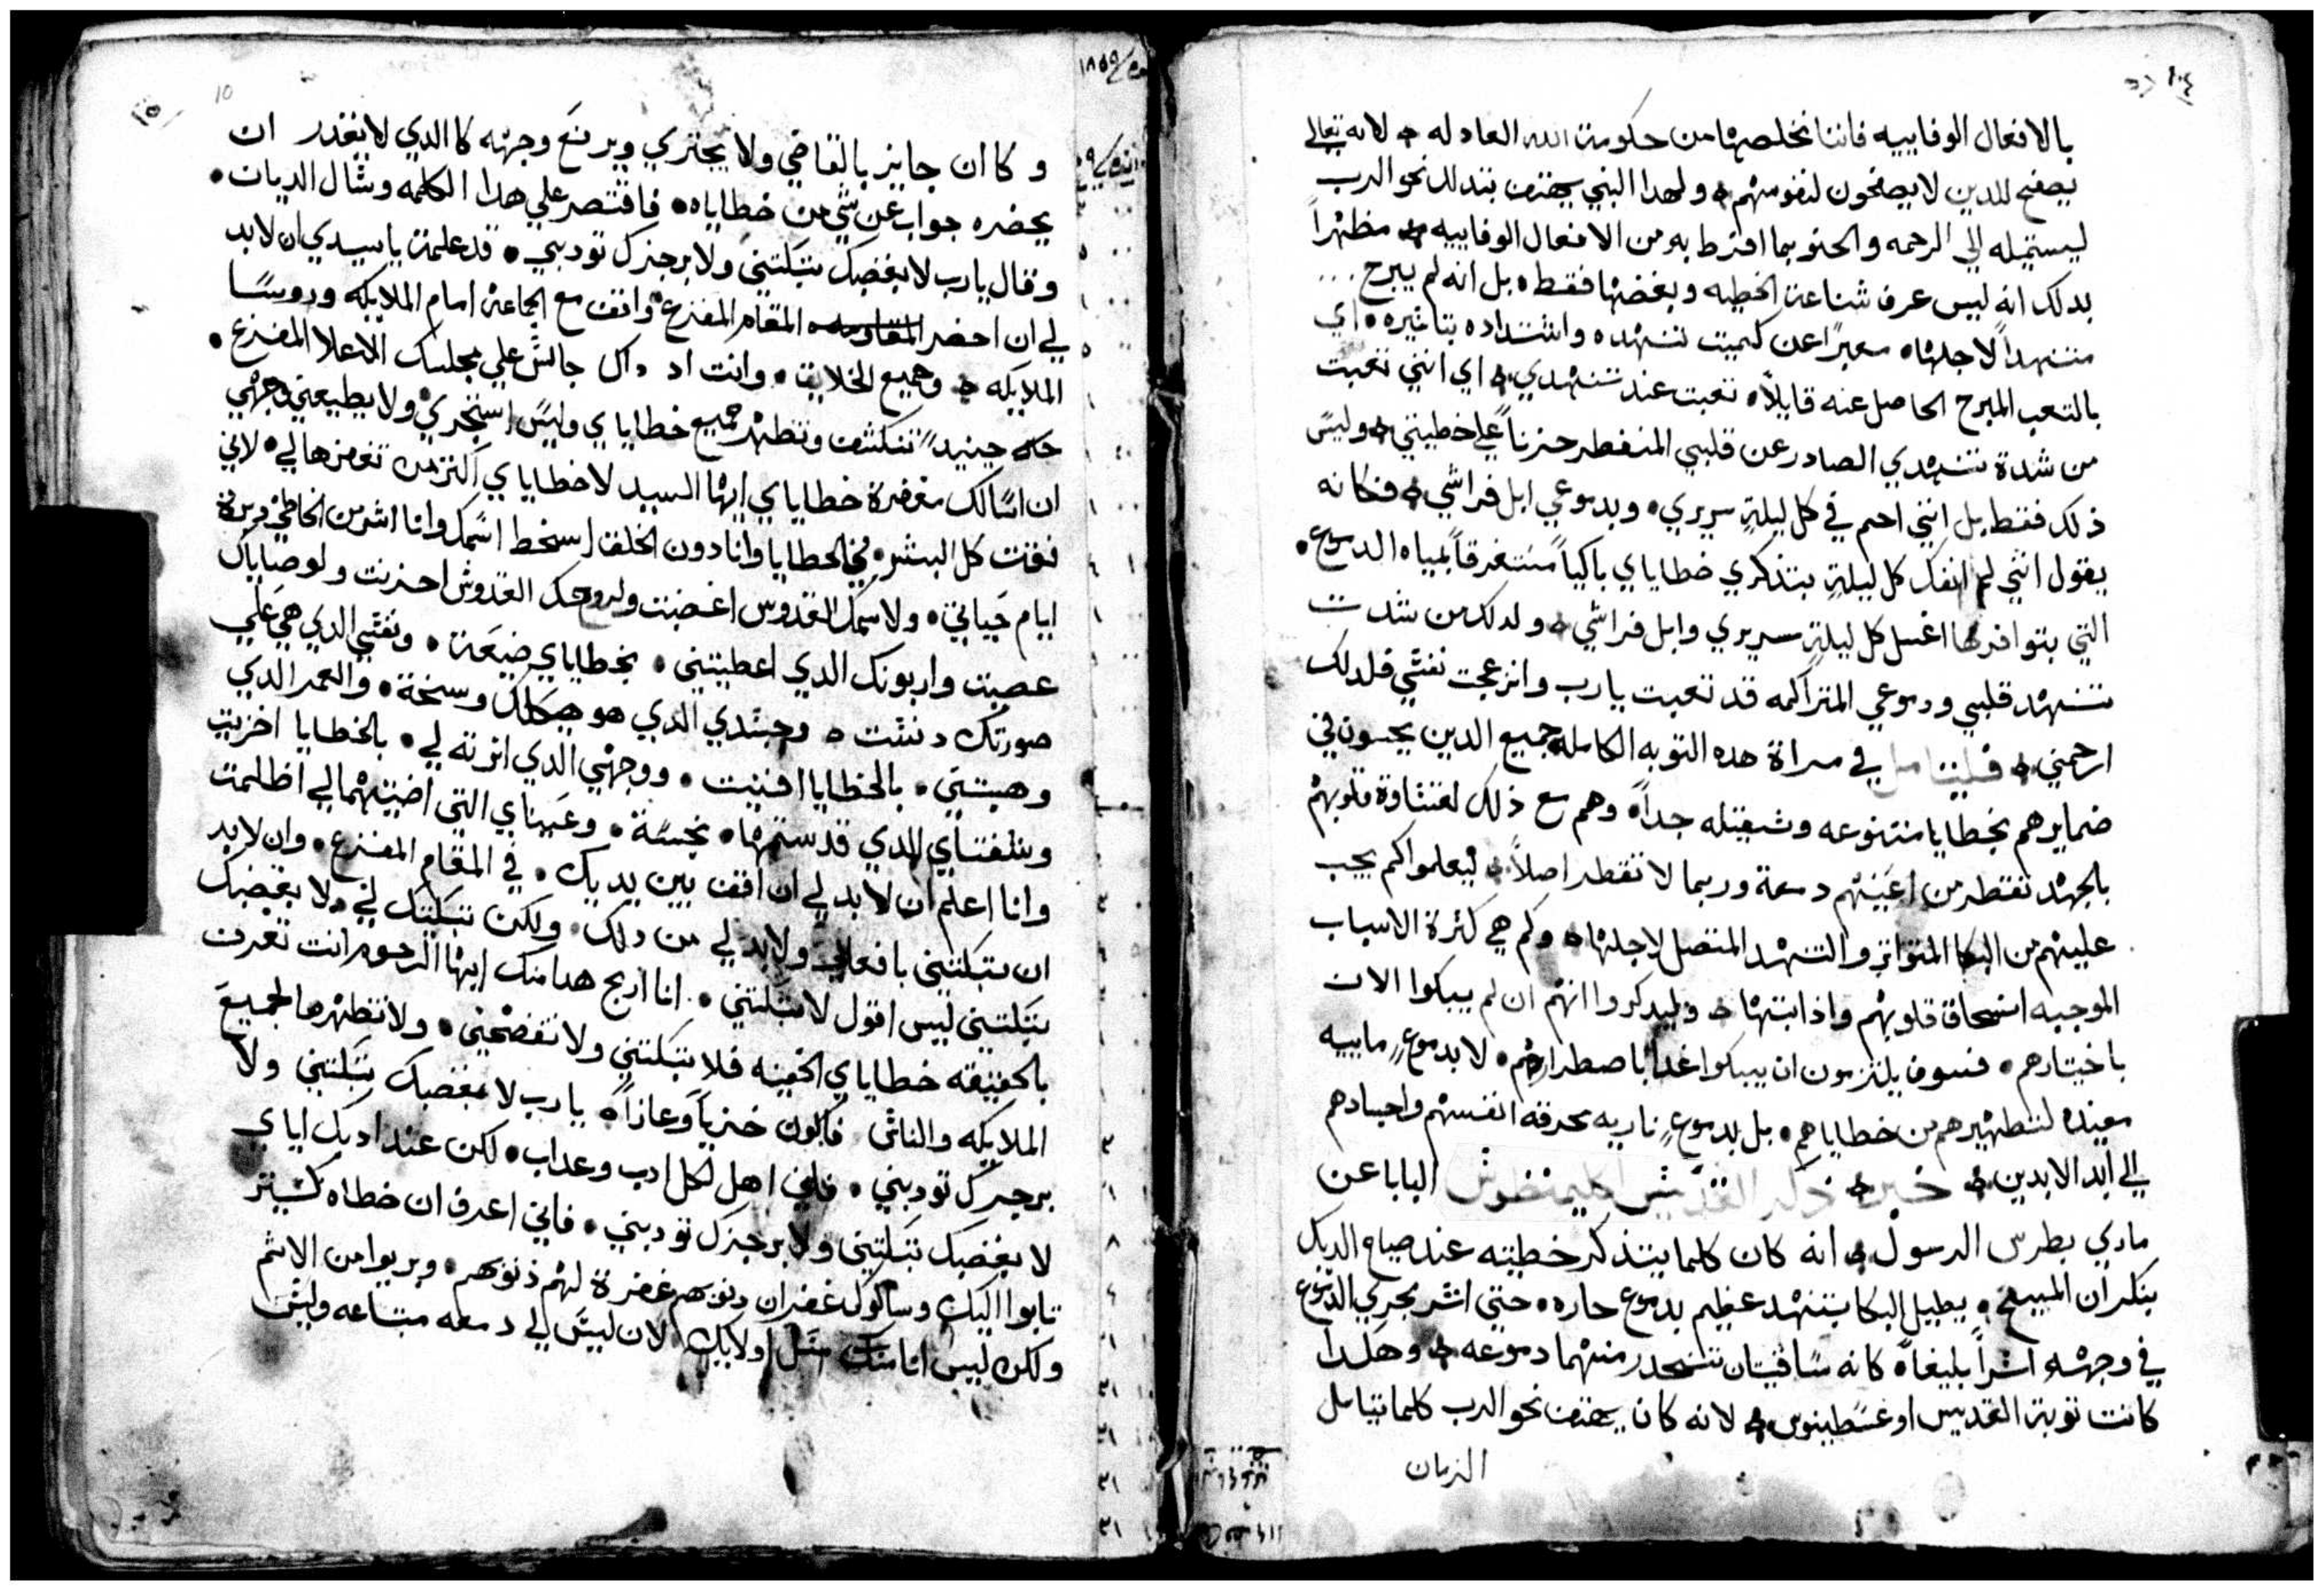 بالافعال الوفاييه فاننا نخلصها من حكومة الله العادله لانه تعالى
يصفح للدين لا يصفحون لنفوسهم ولهدا النبي يهتف بتدلل نحو الرب
ليستميله الي الرحمه والحنو بما افترط به من الافعال الوفاييه مظهراً
بدلك انه ليس عرف شناعة الخطيه وبغضها فقط بل انه لم يبرح
متنهداً لاجلها معبراً عن كميت تنهده واشتداده بتاثيره اي
بالتعب المبرح الحاصل عنه قايلاً تعبت عند تنهدي اي انني تعبت
من شدة تنهدي الصادر عن قلبي المنفطر حزناً علي خطيتي وليس
ذلك فقط بل انني احم في كل ليلةٍ سريري وبدموعي ابل فراشي فكانه
يقول انني لم انفك كل ليلةٍ بتذكري خطاياي باكياً مستغرقاً بمياه الدموع
التي بتوافرها اغسل كل ليلةٍ سريري وابل فراشي ولدلك من شدت
تنهد قلبي ودموعي المتراكمه قد تعبت يارب وانزعجت نفسي فلدلك
ارحمني فليتامل في مراة هده التوبه الكامله جميع الدين يحسون في
ضمايرهم بخطايا متنوعه وثقيله جداً وهم مع ذلك لقساوة قلوبهم
بالجهد تقطر من اعينهم دمعة وربما لا تقطر اصلاً ليعلموا كم يجب
عليهم من البكا المتواتر والتنهد المتصل لاجلها وكم هي كثرة الاسباب
الموجبه انسحاق قلوبهم واذابتها وليدكروا انهم ان لم يبكوا الان
باختيارهم فسوف يلتزمون ان يبكوا غداً باصطرارهم لا بدموعٍ ماييه
مفيده لتطهيرهم من خطاياهم بل بدموعٍ ناريه محرقه انفسهم واجسادهم
الي ابد الابدين خبر ذكر القديس اكليمنضوس البابا عن
ماري بطرس الرسول انه كان كلما يتذكر خطيته عند صياح الديك
بنكران المسيح يطيل البكا بتنهد عظيم بدموع حاره حتي اثر بجري الدموع
في وجهه اثراً بليغاً كانه ساقيتان تنحدر منهما دموعه وهكدا
كانت توبة القديس اوغسطينوس لانه كان يهتف نحو الرب كلما تامل
الزمان
وكاان جايز بالقاضي ولا يجتري ويرفع وجهه كاالدي لا يقدر ان
يحضره جواب عن شي من خطاياه فاقتصر علي هدا الكلمه وسال الديان
وقال يارب لا بغضبك تبكتني ولا برجزك تودبني قد علمت ياسيدي ان لابد
لي ان احضر المقام المفزع واقف مع الجماعة امام الملايكه وروسا
الملايكه وجميع الخلايق وانت اد داك جالس علي مجلسك الاعلا المفزع
حينيدٍ تنكشف وتظهر جميع خطاياي وليس استجري ولا يطيعني وجهي
ان اسالك مغفرة خطاياي ايها السيد لا خطاياي اكثر من تغفرها لي لاني
فقت كل البشر في الخطايا وانا دون الخلق اسخط اسمك وانا اشر من الخاطي
ايام حياتي ولاسمك القدوس اغضبت ولروحك القدوس احزنت ولوصاياك
عصيت واربونك الدي اعطيتني بخطاياي ضيعة ونفسي الدي هي علي
صورتك دنست وجسدي الدي هو هيكلك وسخة والعمر الدي
وهبتني بالخطايا افنيت ووجهي الدي انرته لي بالخطايا اخزيت
وشفتاي الدي قدستها نجسة وعيناي التي اضيتهما لي اظلمت
وانا اعلم ان لابد لي ان اقف بين يديك في المقام المفزع وان لابد
ان تبكتني بافعالي ولابد لي من دلك ولكن تبكيتك لي ولا بغضبك
تبكتني ليس اقول لا تبكتني انا اريح هدا منك ايها الرحوم انت تعرف
بالحقيقه خطاياي الخفيه فلا تبكتني ولا تفضحني ولا تظهرها لجميع
الملايكه والناس فاكون خزياً وعاراً يارب لا بغضبك تبكتني ولا
برجزك تودبني فاني اهل لكل ادب وعداب لكن عند ادبك اياي
لا بغضبك تبكتني ولا برجزك تودبني فاني اعرف ان خطاه كثير
تابوا اليك وسالوك غفران دنوبهم غفرة لهم ذنوبهم وبريوا من الاثم
ولكن ليس انا مثل اولايك لان ليس لي دمعه مثاعه وليس